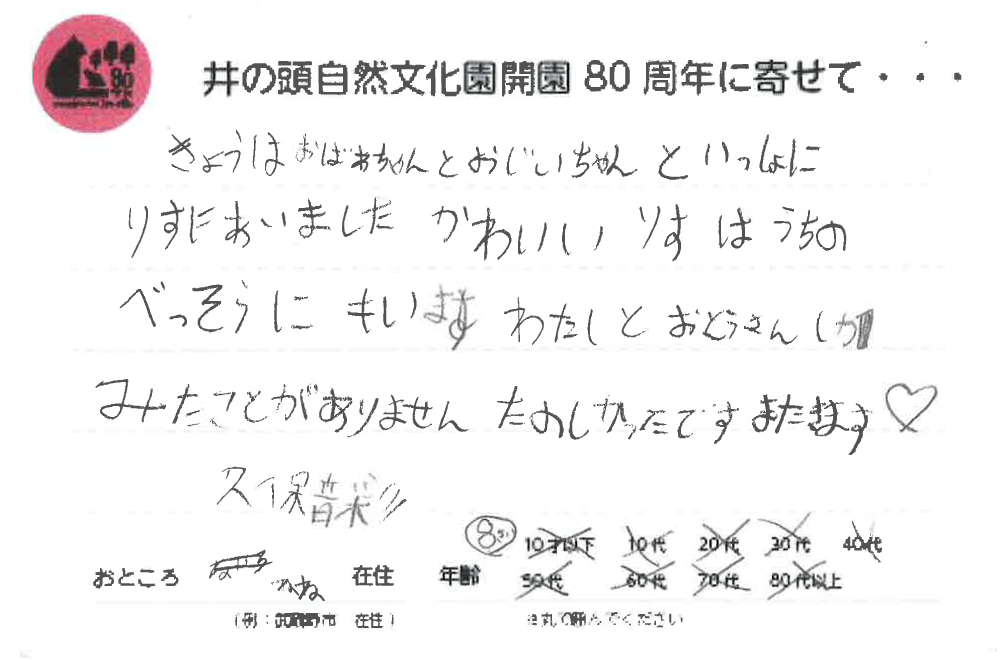 80
井の頭自然文化園開園 80 周年に寄せて・・・
きょうは おばあちゃんとおじいちゃん と いっしょに
りすにあいました かわいい りす は うちの
べっそうに もいます わたしと おとうさん しか
みたことがありません たのしかったです またきます♡
久保音彩
8さい 10才以下 10代 20代 30代 40代
おところ 在住 年齢 50代 60代 70代 80代以上
(例：武蔵野市 在住) ※丸で囲んでください